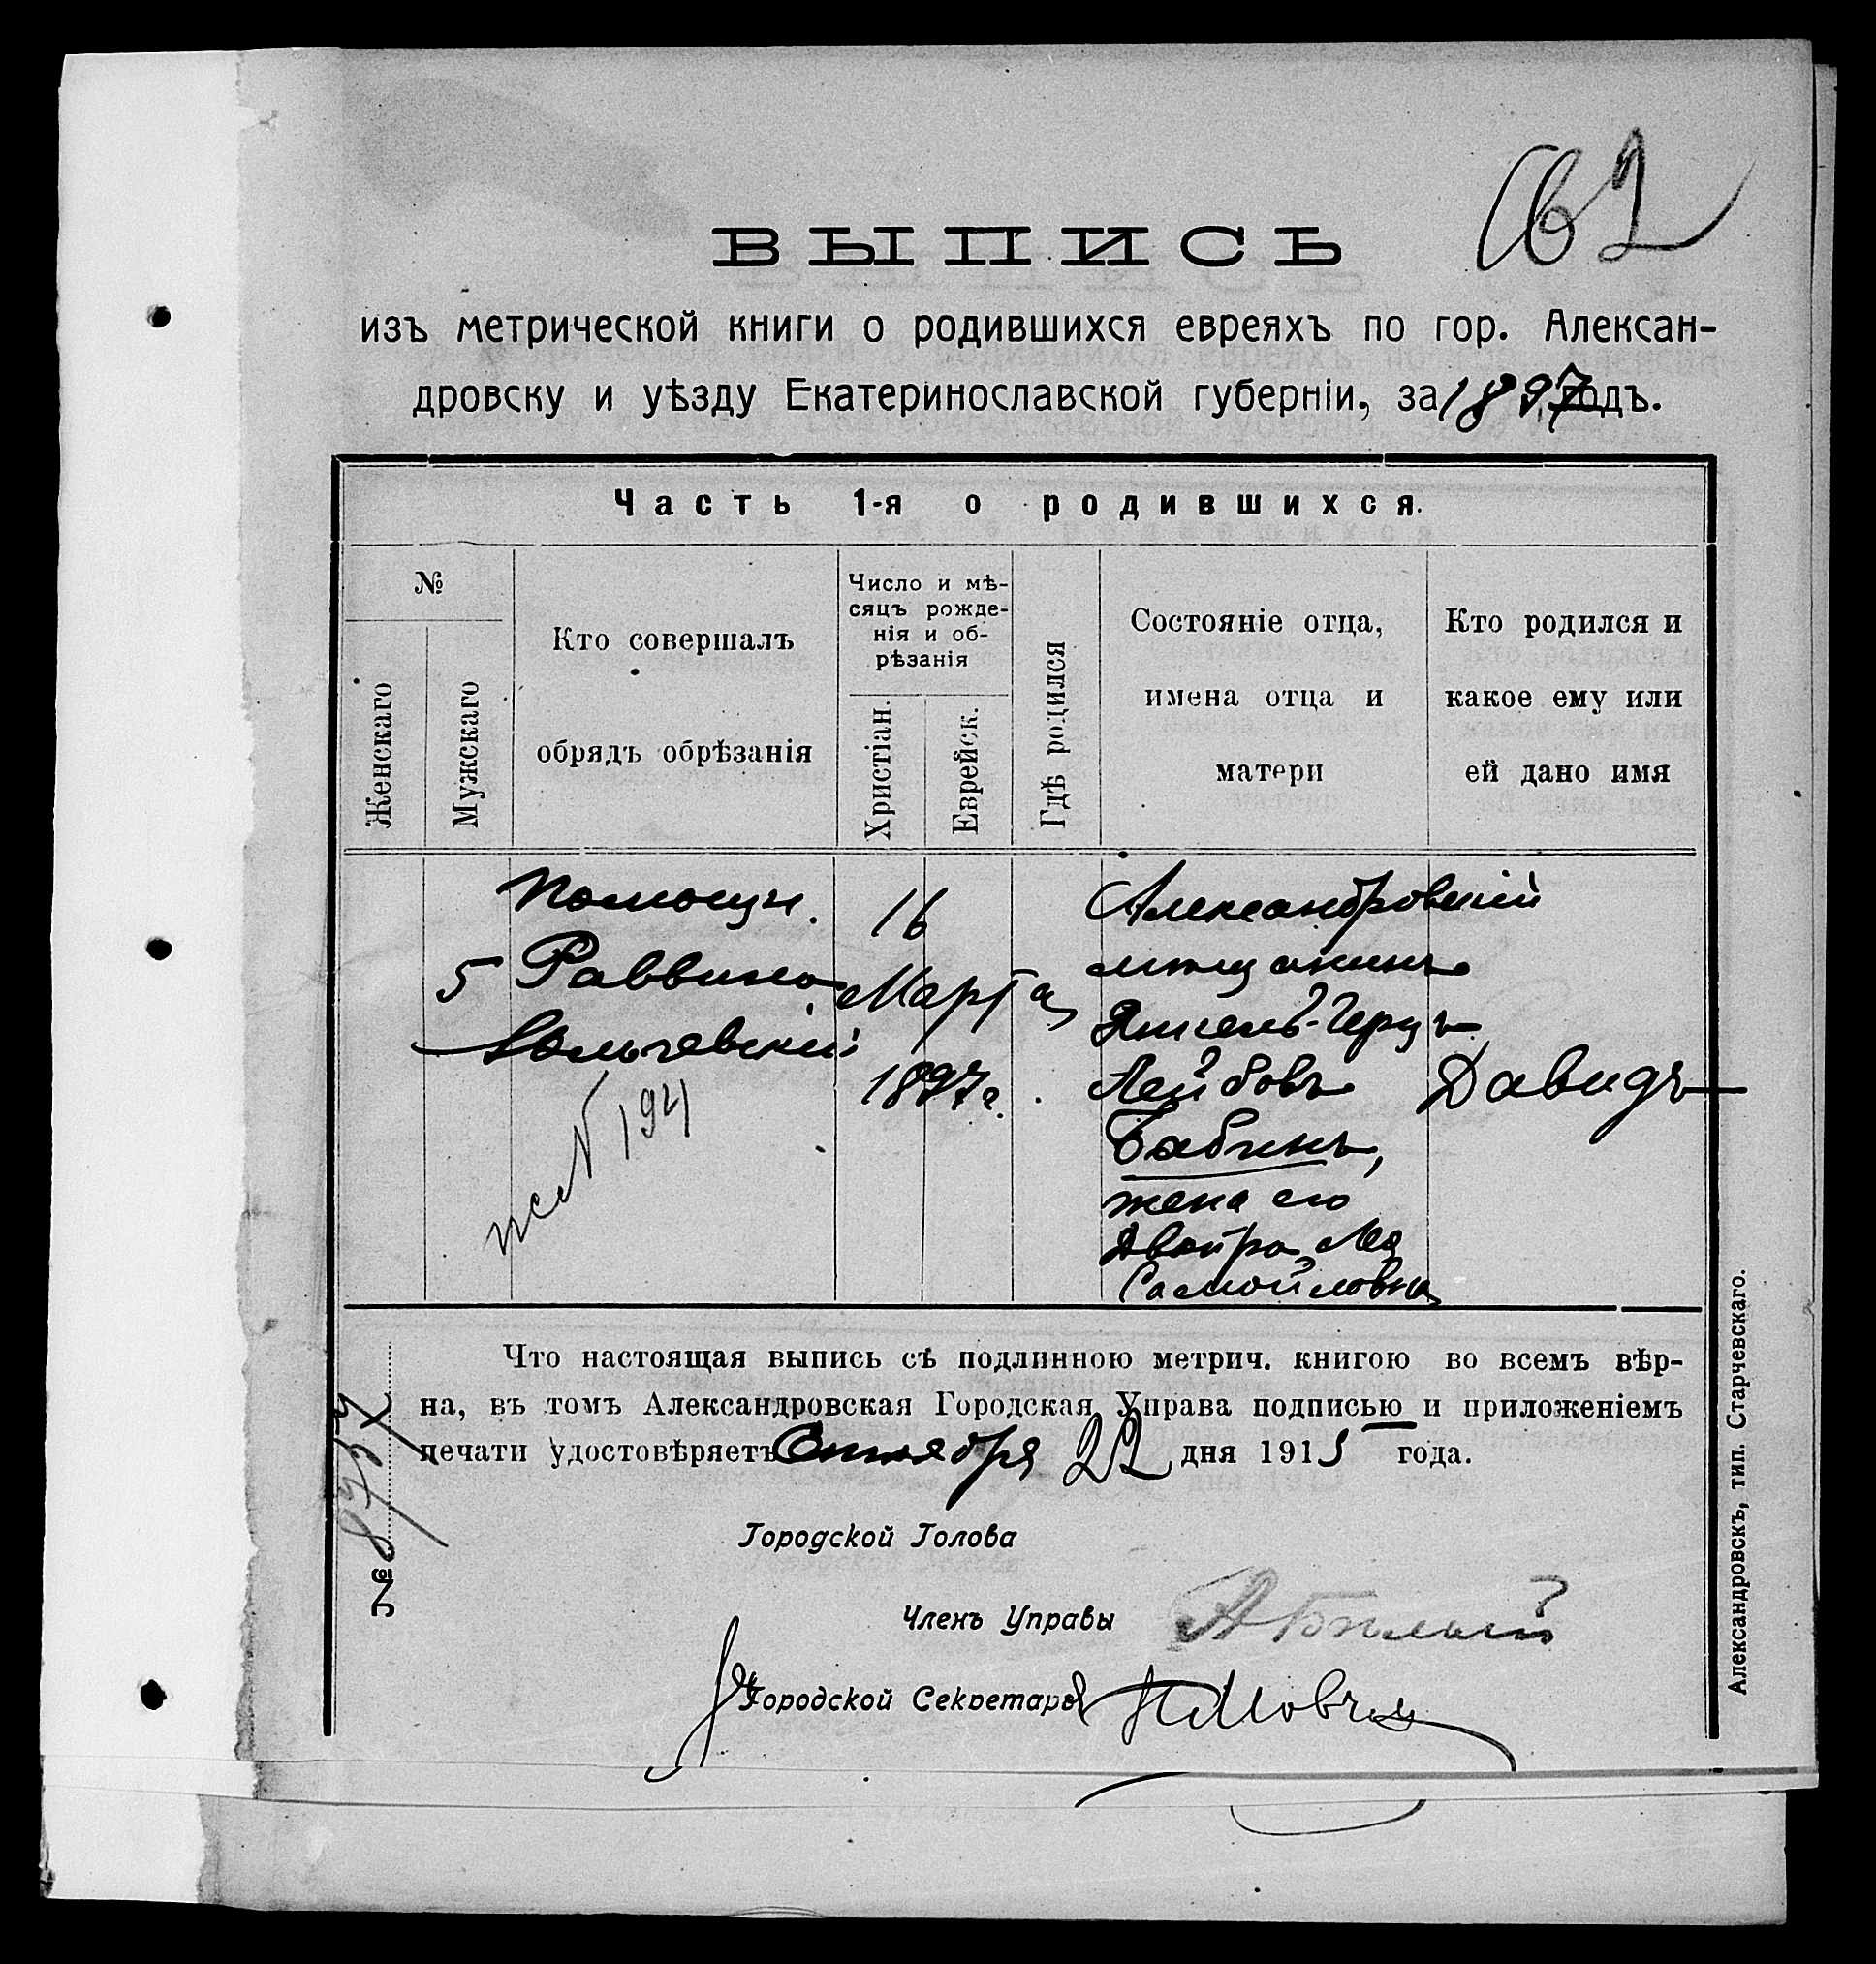 162
ВЫПИСЬ
изъ метрической книги о родившихся евреяхъ по гор. Алексан-
дровску и уѣзду Екатеринославской губерніи, за 1897 годъ.
Часть 1-я о родившихся.
№
Женскаго
Мужскаго
Кто совершалъ
обрядъ обрѣзанія
Число и мѣ-
сяцъ рожде-
нія и об-
рѣзанія
Христіан.
Еврейск.
Гдѣ родился
Состояніе отца,
имена отца и
матери
Кто родился и
какое ему или
ей дано имя
5
Помощн.
Раввина
16
Марта
1897 г.
Александровскій
мѣщанинъ
Лейбовъ
Бабинъ,
жена его
Двойра Лея
Самойловна
Давидъ
194
Что настоящая выпись съ подлинною метрич. книгою во всемъ вѣр-
на, въ томъ Александровская Городская Управа подписью и приложеніемъ
печати удостовѣряетъ 22 дня 1915 года.
№
Городской Голова
Членъ Управы
Городской Секретарь
Александровскъ, тип. Старчевскаго.